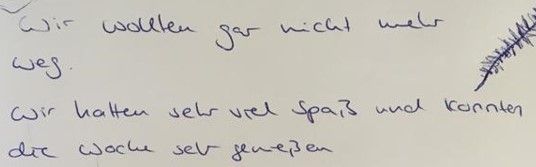 Wir wollten gar nicht mehr
weg.
Wir hatten sehr viel Spaß und konnten
die Woche sehr genießen